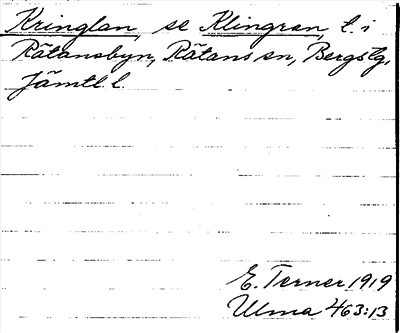 Kringlan, se Klingran, t. i
Rätansbyn, Rätans sn, Bergs tg,
Jämtl. l.
E. Terner 1919
Ulma 463:13